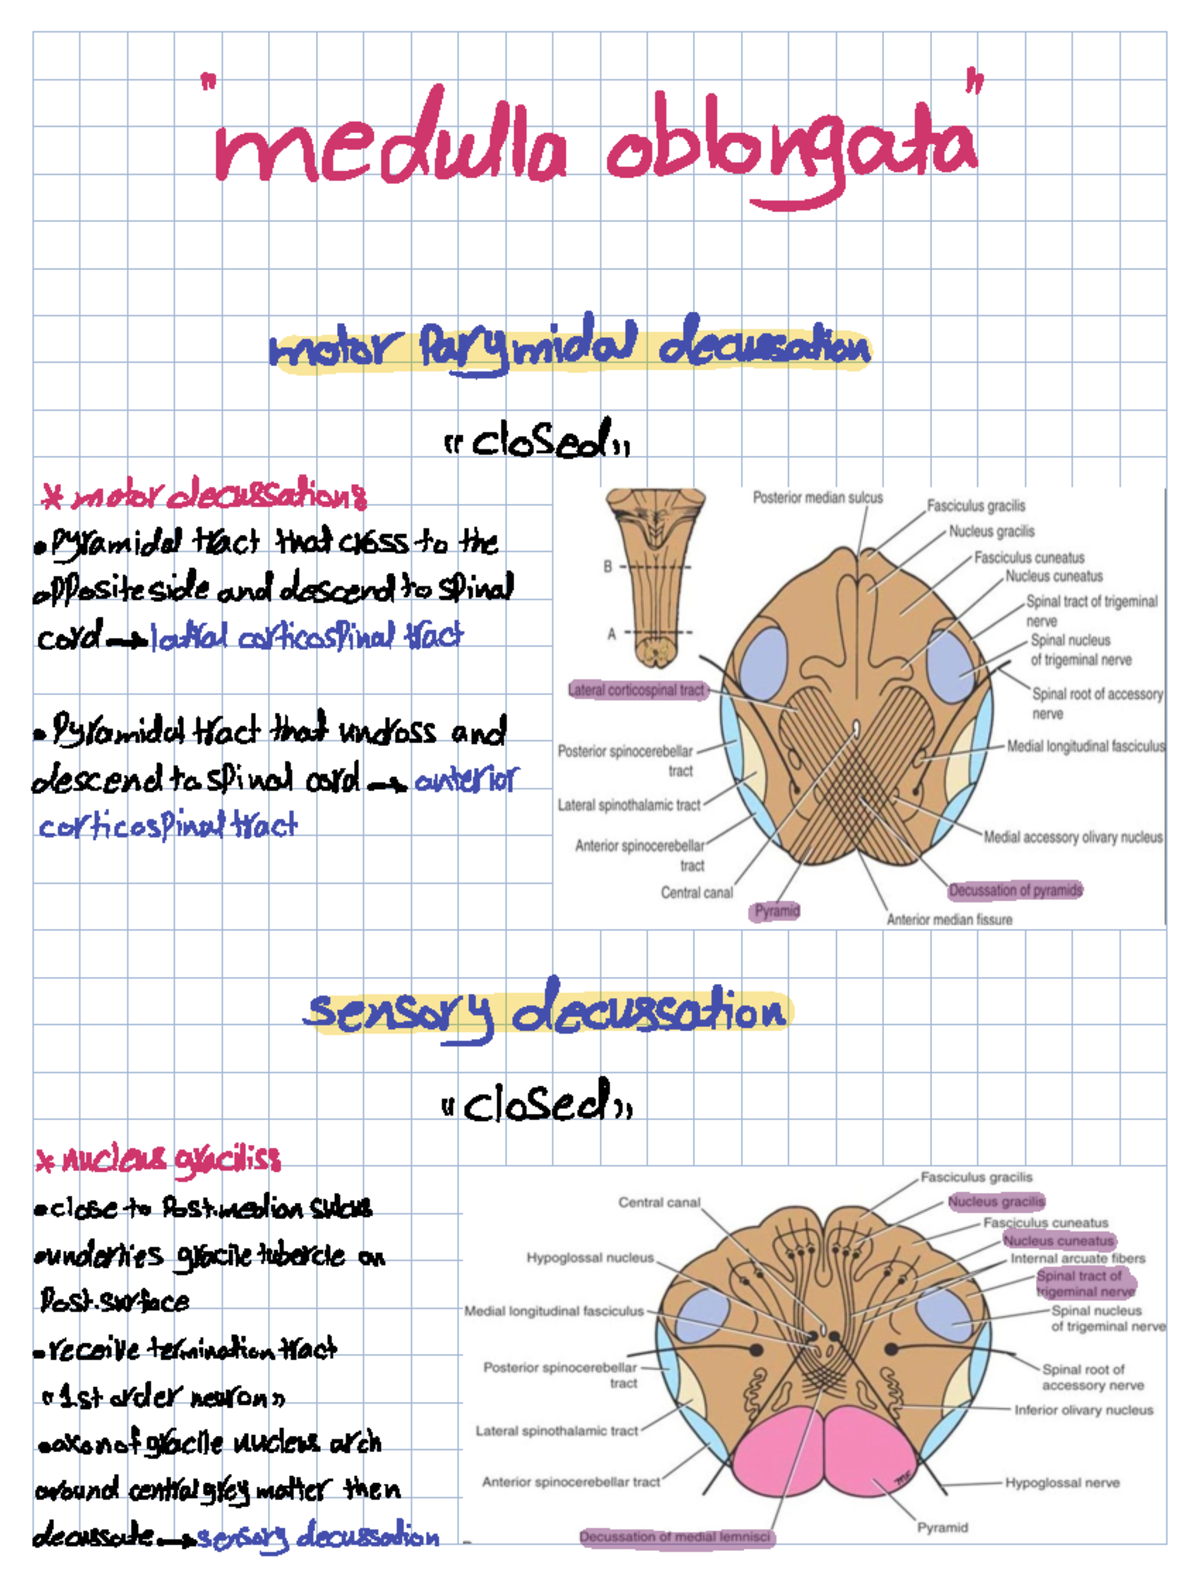 "medulla oblongata"
motor Parymidal decussation
"closed"
* motor decussations
• Pyramidal tract that cross to the
opposite side and descend to spinal
cord → latral corticospinal tract
• Pyramidal tract that uncross and
descend to spinal cord → anterior
corticospinal tract
Posterior median sulcus
Fasciculus gracilis
Nucleus gracilis
Fasciculus cuneatus
Nucleus cuneatus
Spinal tract of trigeminal
nerve
Spinal nucleus
of trigeminal nerve
Spinal root of accessory
nerve
Medial longitudinal fasciculus
Medial accessory olivary nucleus
Decussation of pyramids
Anterior median fissure
B
A
Lateral corticospinal tract
Posterior spinocerebellar
tract
Lateral spinothalamic tract
Anterior spinocerebellar
tract
Central canal
Pyramid
sensory decussation
"closed"
* nucleus graciliss
• close to Post.median sulcus
• underlies gracile tubercle on
Post.surface
• receive termination tract
"1st order neuron"
• axon of gracile nucleus arch
around central grey matter then
decussate → sensory decussation
Central canal
Hypoglossal nucleus
Medial longitudinal fasciculus
Posterior spinocerebellar
tract
Lateral spinothalamic tract
Anterior spinocerebellar tract
Decussation of medial lemnisci
Fasciculus gracilis
Nucleus gracilis
Fasciculus cuneatus
Nucleus cuneatus
Internal arcuate fibers
Spinal tract of
trigeminal nerve
Spinal nucleus
of trigeminal nerve
Spinal root of
accessory nerve
Inferior olivary nucleus
Hypoglossal nerve
Pyramid